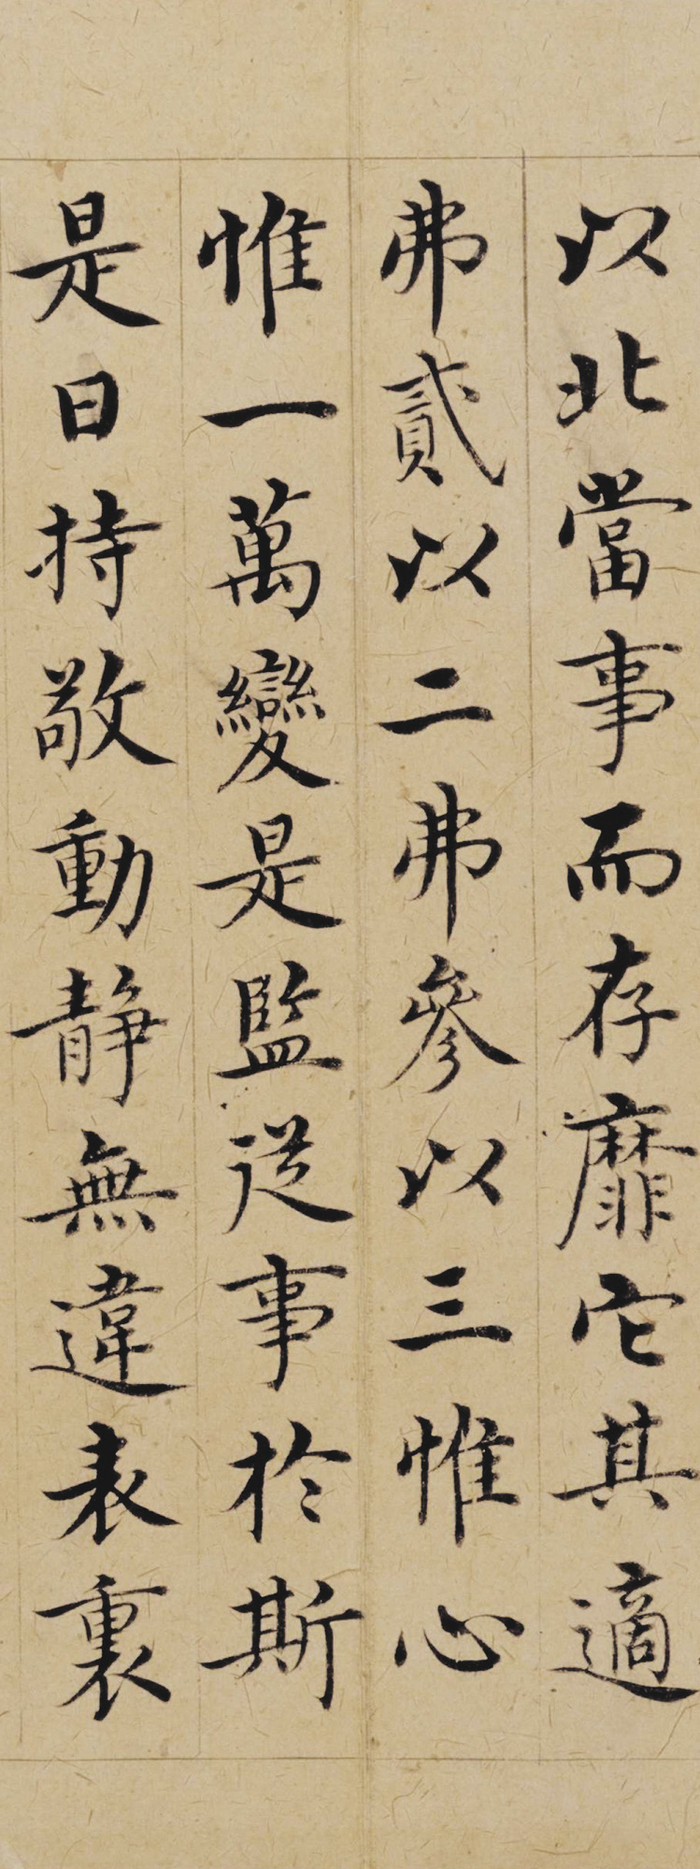 以北當事而存靡它其適
弗貳以二弗參以三惟心
惟一萬變是監從事於斯
是日持敬動静無違表裏